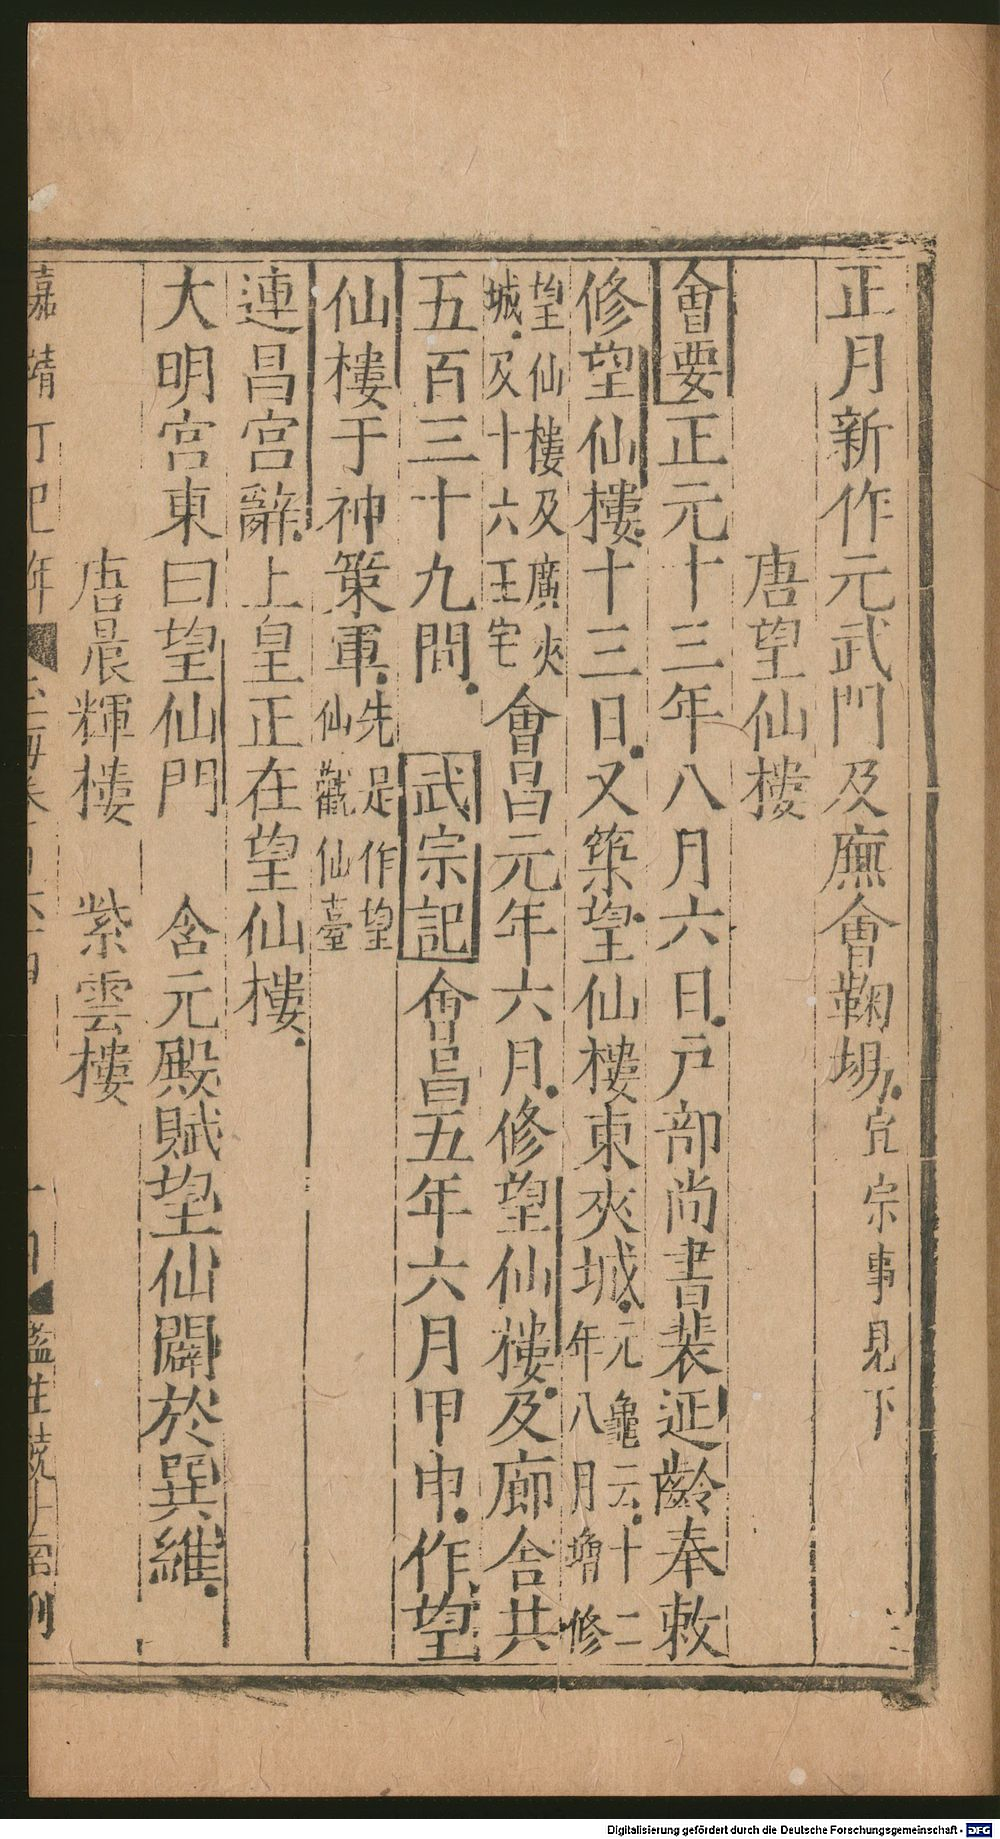 正月新作元武門及廡會鞠場宣宗事見下
唐望仙樓
會要正元十三年八月六日戸部尚書裴延齡奉敕
修望仙樓十三日又築望仙樓東夾城元龜云十二年八月增修
望仙樓及廣夾城及十六王宅會昌元年六月修望仙樓及廊舍共
五百三十九間武宗記會昌五年六月甲申作望
仙樓于神策軍先是作望仙觀仙臺
連昌宮辭上皇正在望仙樓
大明宮東曰望仙門 含元殿賦望仙闢於巽維
唐晨輝樓 紫雲樓
嘉靖丁巳年
Digitalisierung gefördert durch die Deutsche Forschungsgemeinschaft - DFG